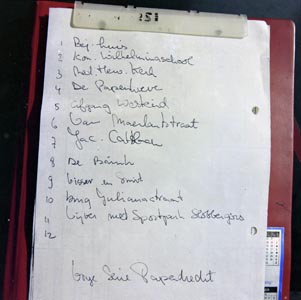 151
1 Bej. huis
2 Kon. Wilhelminaschool
3 Ned. Herv. Kerk
4 De Papenwere
5 afgang Westeind
6 Van Maerlantstraat
7 Jac. Catslaan
8 De Brink
9 Visser en Smit
10 brug Julianastraat
11 Vijver met Sportpark Slobbengors
12
Papendrecht